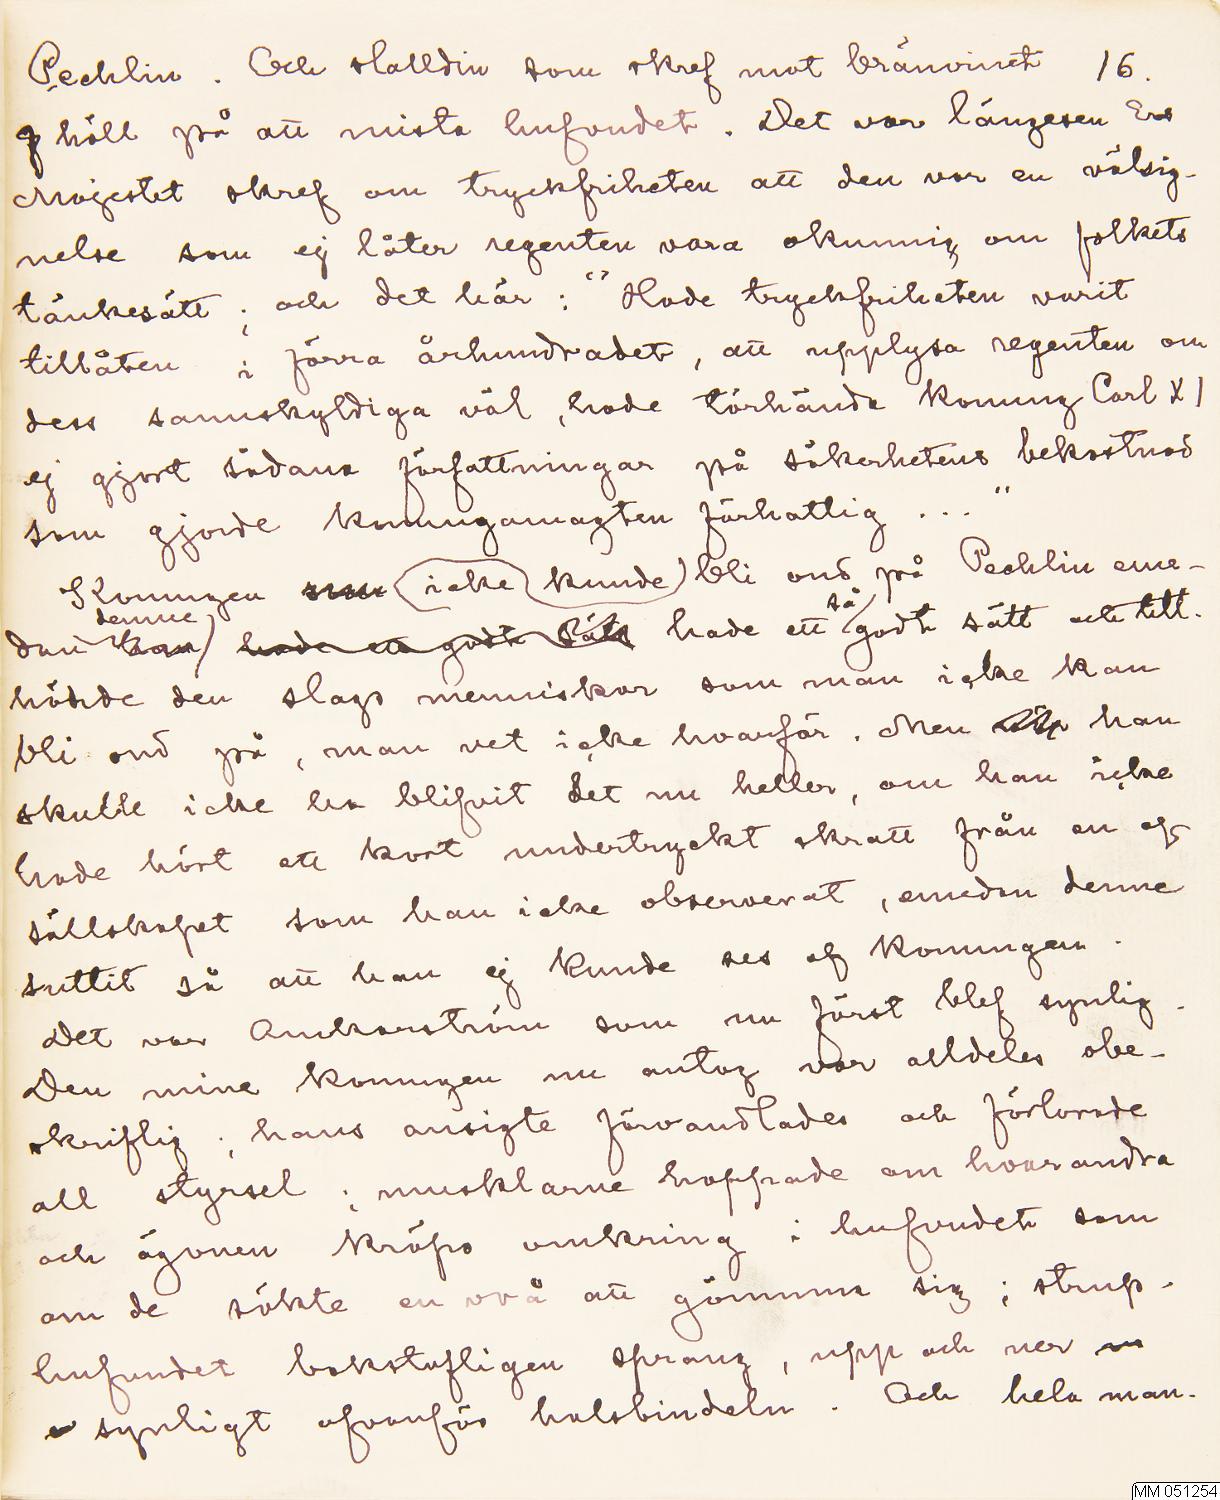 Pechlin. Och Halldin som skref mot bränvinet 16.
höll på att mista hufvudet. Det var längesen Ers
Majestet skref om tryckfriheten att den var en välsig-
nelse som ej låter regenten vara okunnig om folkets
tänkesätt; och det här: "Hade tryckfriheten varit
tillåten i förra århundradet, att upplysa regenten om
dess sannskyldiga väl, hade törhända konung Carl XI
ej gjort sådana författningar på säkerhetens bekostnad
som gjorde konungamagten förhatlig ..."
Konungen icke kunde bli ond på Pechlin eme-
dan denne hade ett så godt sätt och till-
hörde den slags menniskor som man icke kan
bli ond på, man vet icke hvarför. Men han
skulle icke ha blifvit det nu heller, om han icke
hade hört ett kort undertryckt skratt från en af
sällskapet som han icke observerat, emedan denne
suttit så att han ej kunde ses af konungen.
Det var Ankarström som nu först blef synlig.
Den mine konungen nu antog var alldeles obe-
skriflig; hans ansigte förvandlades och förlorade
all styrsel; musklarne hoppade om hvarandra
och ögonen kröpo omkring i hufvudet som
om de sökte en vrå att gömma sig; strup-
hufvudet bokstafligen sprang, upp och ner
synligt ofvanför halsbindeln. Och hela man-
MM 051254